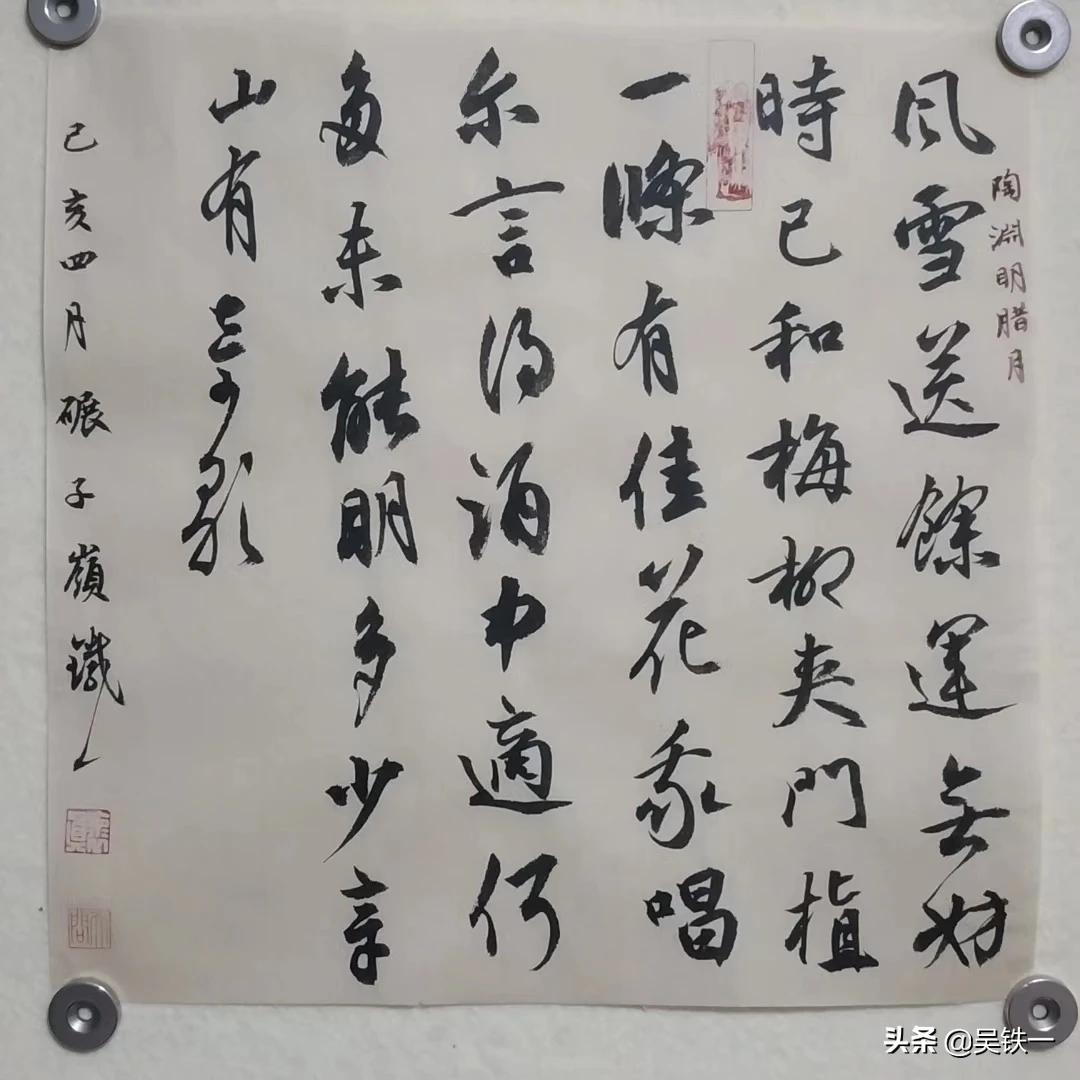 陶淵明腊月
风雪送餘運無妨
時已和梅柳夾門植
一條有佳花我唱
尔言得酒中適何
多未能明多少章
山有奇歌
己亥四月碾子嶺鐵一
头条 @吴铁一